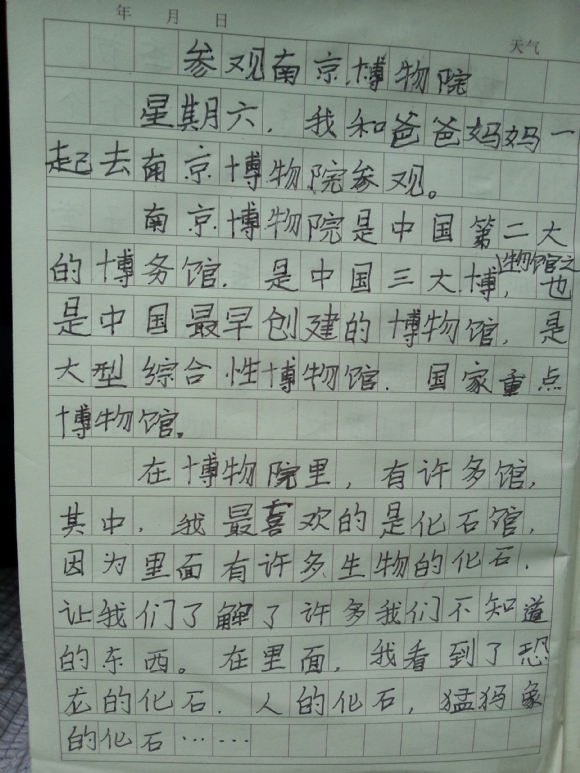 年 月 日
天气
参观南京博物院
星期六，我和爸爸妈妈一
起去南京博物院参观。
南京博物院是中国第二大
的博务馆．是中国三大博物馆之，也
是中国最早创建的博物馆，是
大型综合性博物馆．国家重点
博物馆。
在博物院里，有许多馆，
其中，我最喜欢的是化石馆，
因为里面有许多生物的化石．
让我们了解了许多我们不知道
的东西。在里面，我看到了恐
龙的化石．人的化石，猛犸象
的化石……